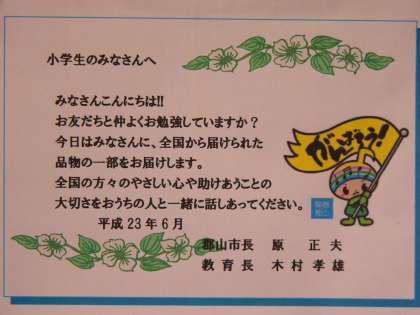 小学生のみなさんへ
みなさんこんにちは!!
お友だちと仲よくお勉強していますか？
今日はみなさんに、全国から届けられた
品物の一部をお届けします。
全国の方々のやさしい心や助けあうことの
大切さをおうちの人と一緒に話しあってください。
平成23年6月
郡山市長　原　正夫
教育長　木村孝雄
がんばろう!